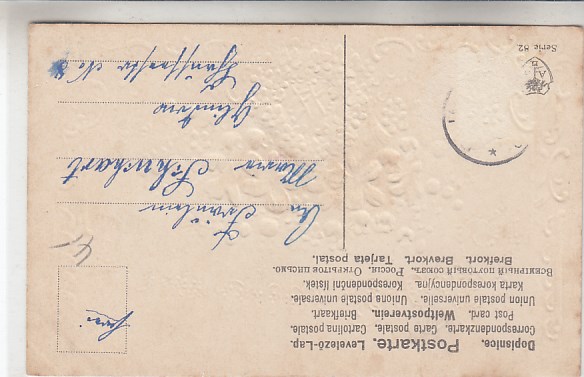 Dopisnice. Postkarte. Levelező-Lap.
Correspondenzkarte. Carte postale. Cartolina postale.
Post card. Weltpostverein. Briefkaart.
Union postale universelle. Unione postale universale.
Karta korespondencyjna. Korespondenčni lístek.
Всемирный почтовый союзъ. Россия. Открытое письмо.
Brefkort. Brevkort. Tarjeta postal.
frei
An
Fräulein
Marie Schuchart
Serie 82